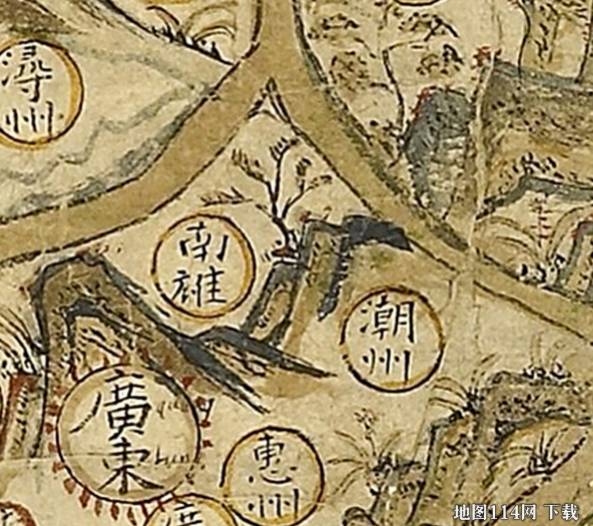 潯
州
南
雄
潮
州
廣
東
惠
州
廣
地图114网 下载